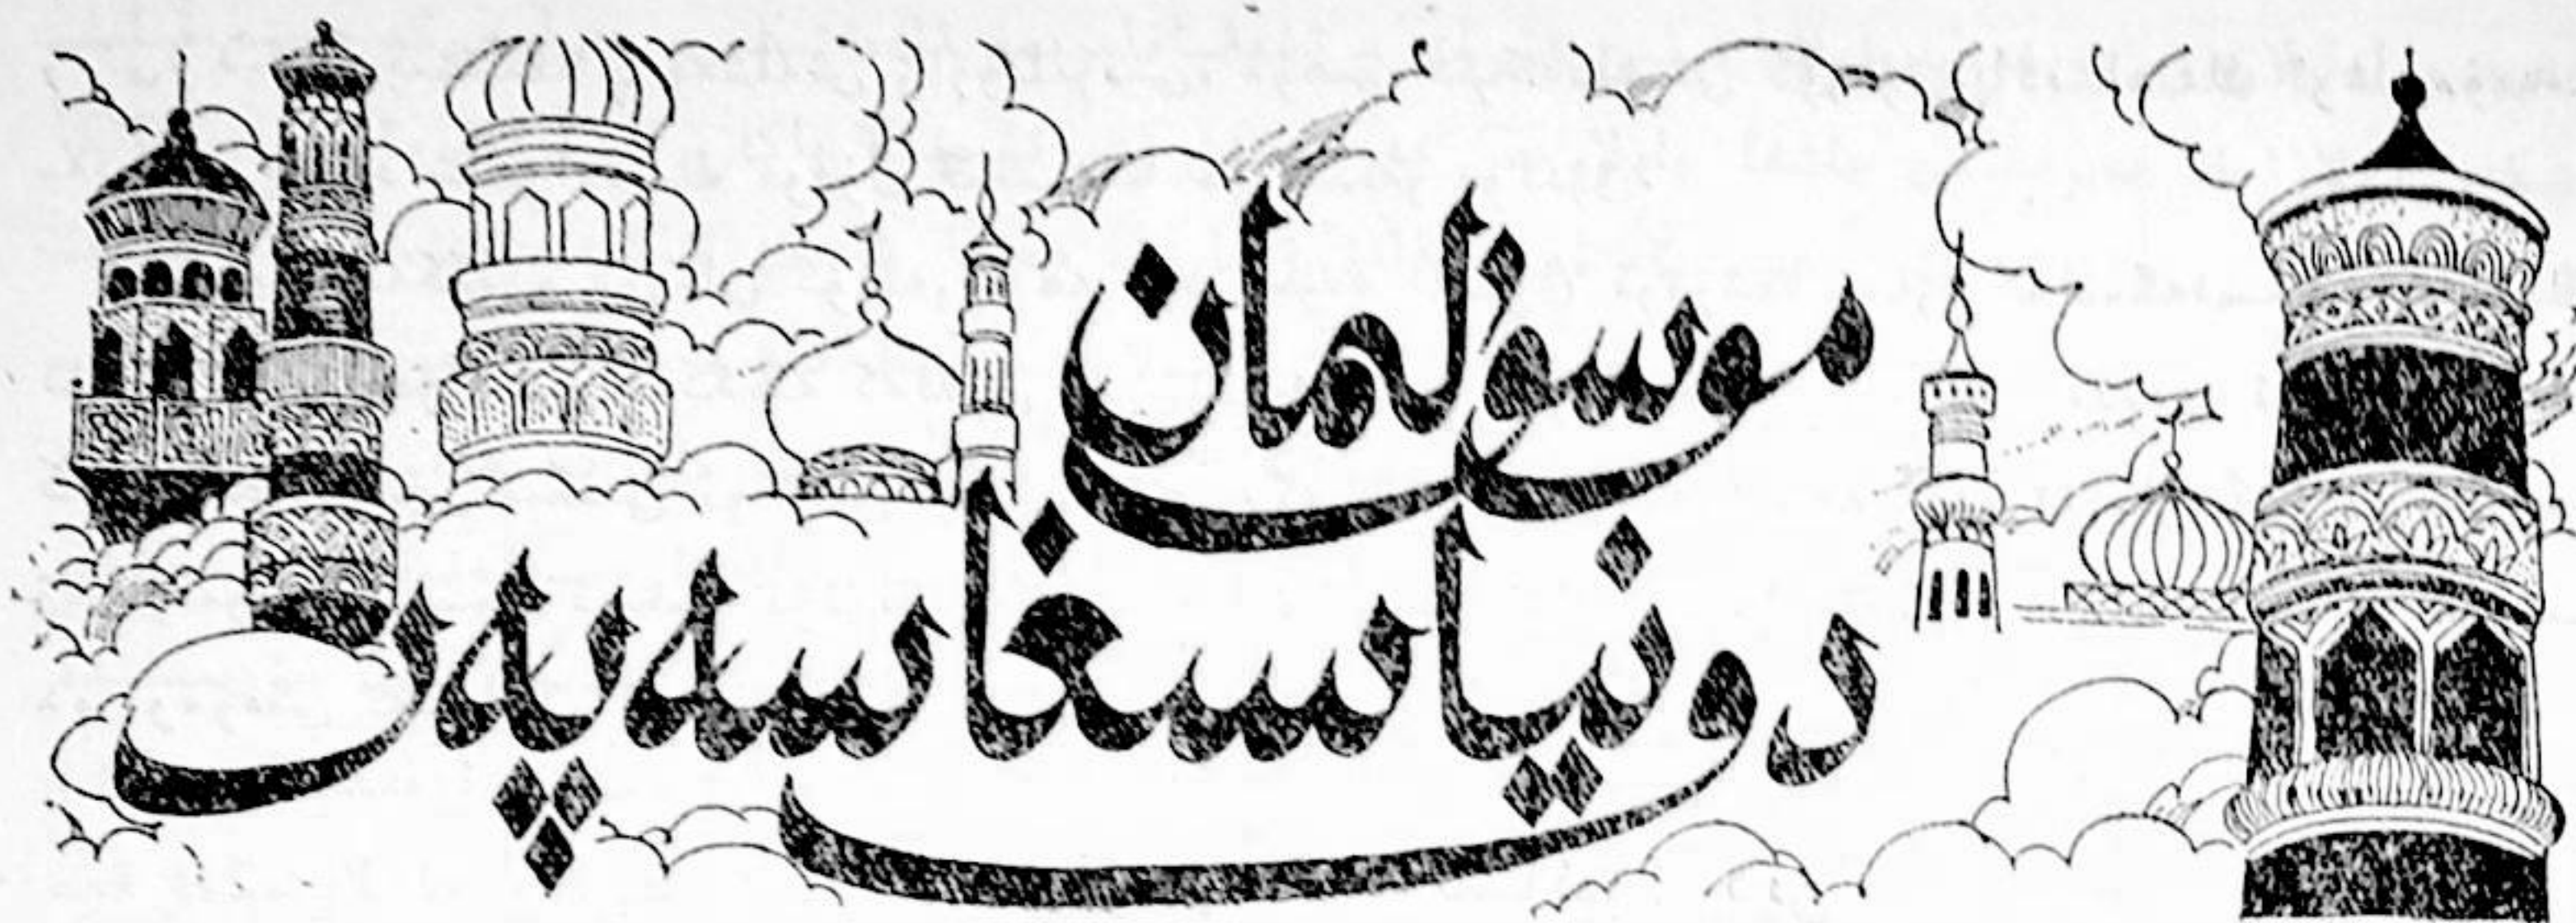 موسۇلمان
دۇنياسىغا سەپەر